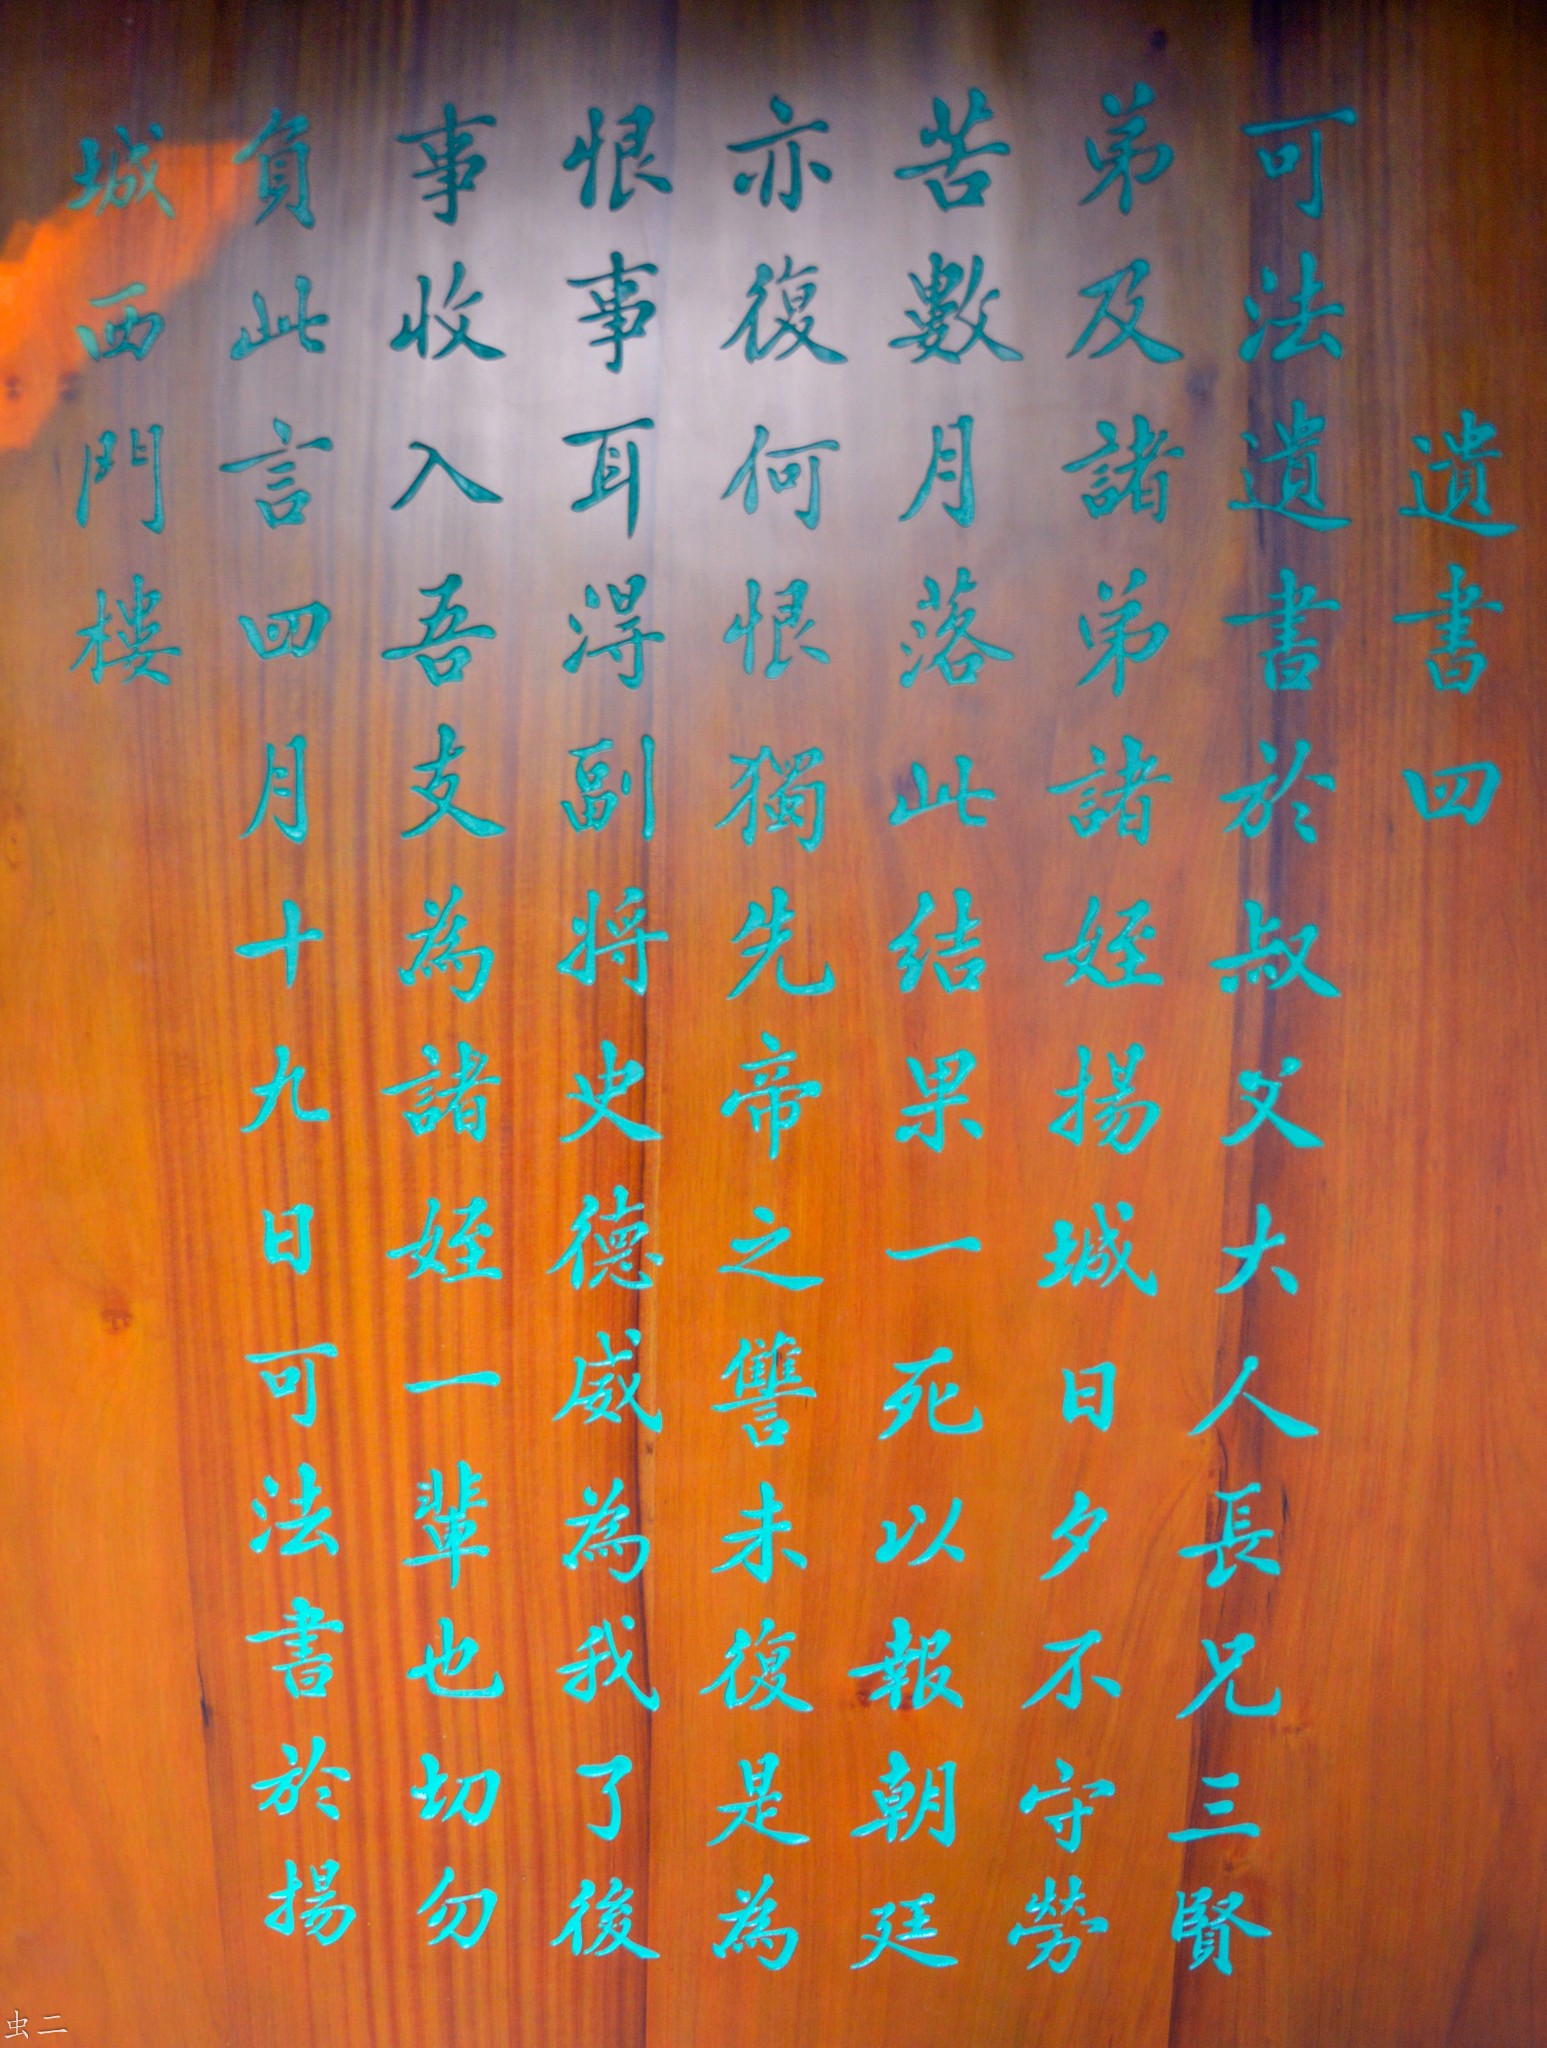 遺書四
可法遺書於叔父大人長兄三賢
弟及諸弟諸姪揚城日夕不守勞
苦數月落此結果一死以報朝廷
亦復何恨獨先帝之讐未復是為
恨事耳得副將史德威為我了後
事收入吾支為諸姪一輩也切勿
負此言四月十九日可法書於揚
城西門樓
虫二